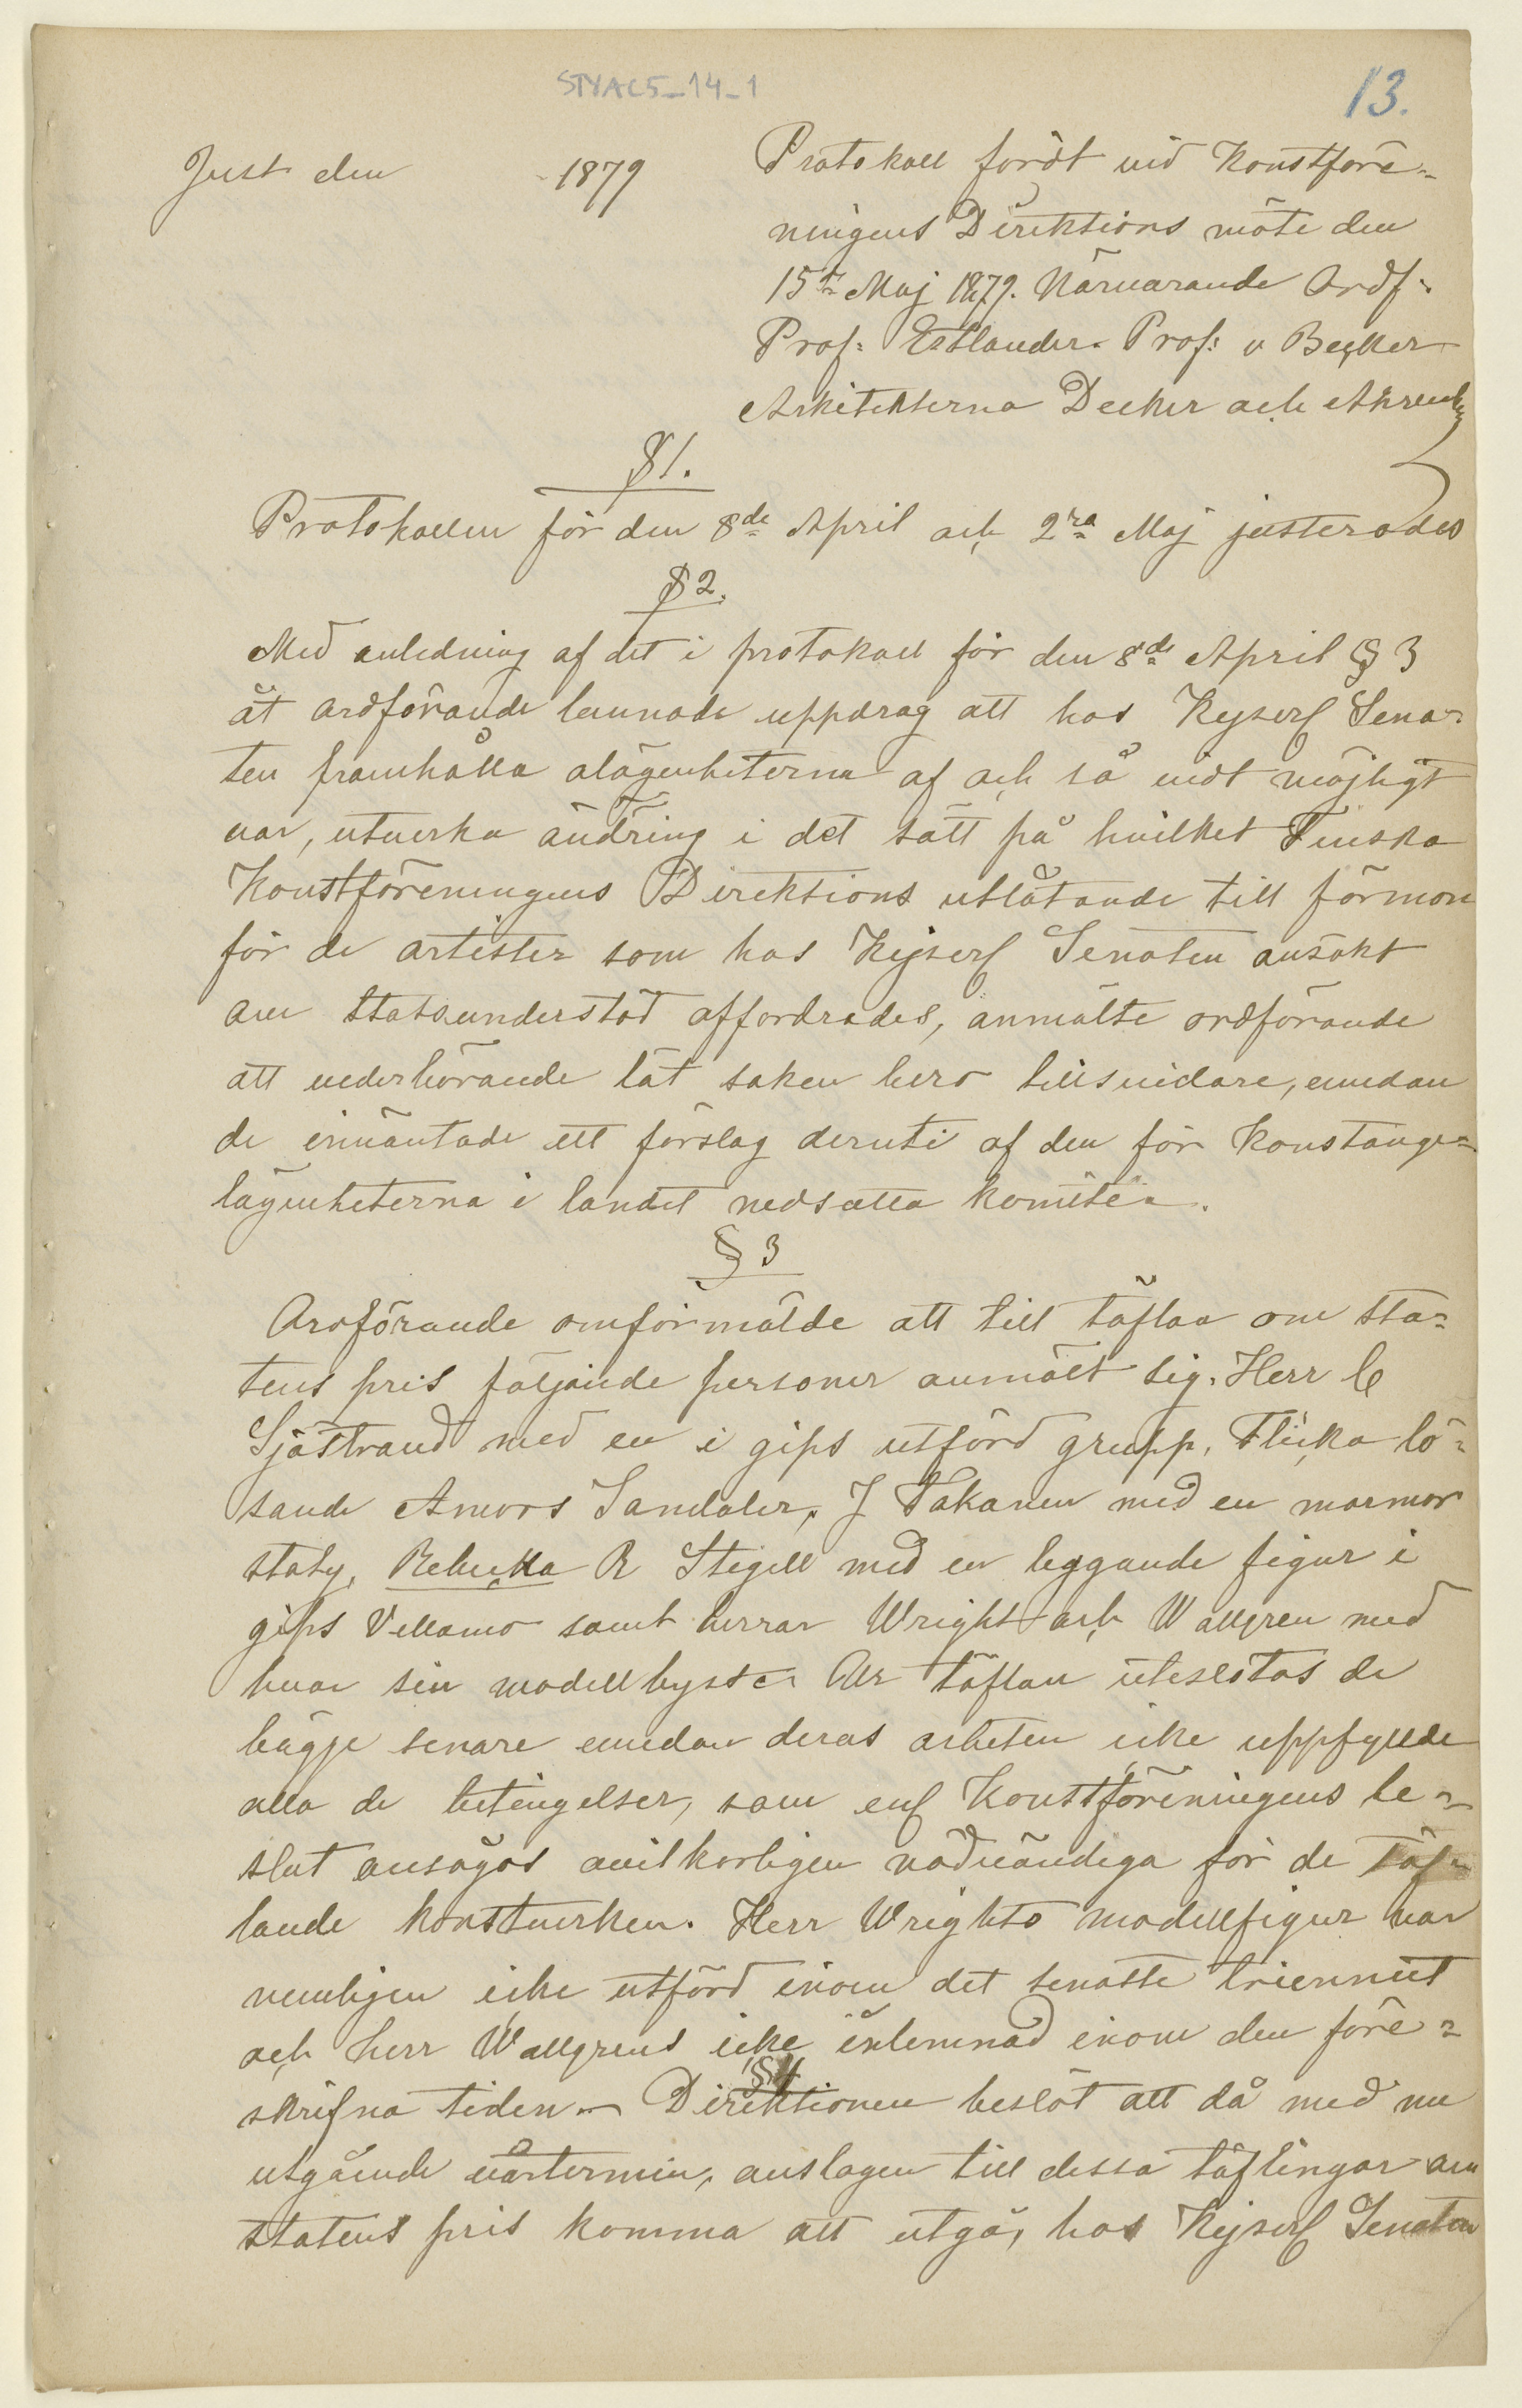 STYAC5_14_1
13.
Just den 1879
Protokoll fördt vid Konstföre-
ningens Direktions möte den
15de Maj 1879. Närvarande Ordf:
Prof: Estlander. Prof: v Becker
Arkitekterna Decker och Ahrenb
§1.
Protokollen för den 8de April och 2ra Maj justerades
§2.
Med anledning af det i protokoll för den 8de April § 3
åt ordförande lemnade uppdrag att hos Kejserl Sena-
ten framhålla olägenheterna af och så vidt möjligt
var, utverka ändring i det sätt på hvilket Finska
Konstföreningens Direktions utlåtande till förmon
för de artister som hos Kejserl Senaten ansökt
om statsunderstöd affordrades, anmälte ordförande
att vederhörande låt saken bero tillsvidare, emedan
de inväntade ett förslag deruti af den för Konstange-
lägenheterna i landet nedsatta komitén.
§ 3
Ordförande omförmälde att till täflan om sta-
tens pris följande personer anmält sig. Herr C
Sjöstrand med en i gips utförd grupp, Flicka lö-
sande Amors Sandaler, J Takanen med en marmor
staty, Rebecka R Stigell med en liggande figur i
gips Vellamo samt herrar Wright och Wallgren med
hvar sin modellbyst. Ur täflan uteslötos de
bägge senare emedan deras arbeten icke uppfyllde
alla de betingelser, som enl Konstföreningens be-
slut ansågos ovilkorligen nödvändiga för de täf-
lande konstverken. Herr Wrights modellfigur var
nemligen icke utförd inom det senaste trienniet
och herr Wallgrens icke inlemnad inom den före-
skrifna tiden. - Direktionen beslöt att då med nu
§4
utgående vårtermin, anslagen till dessa täflingar om
statens pris komma att utgå, hos Kejserl Senaten